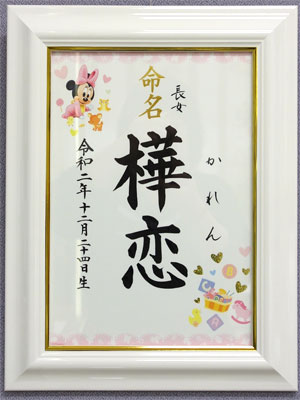 長女
命名
かれん
樺恋
令和二年十二月二十四日生